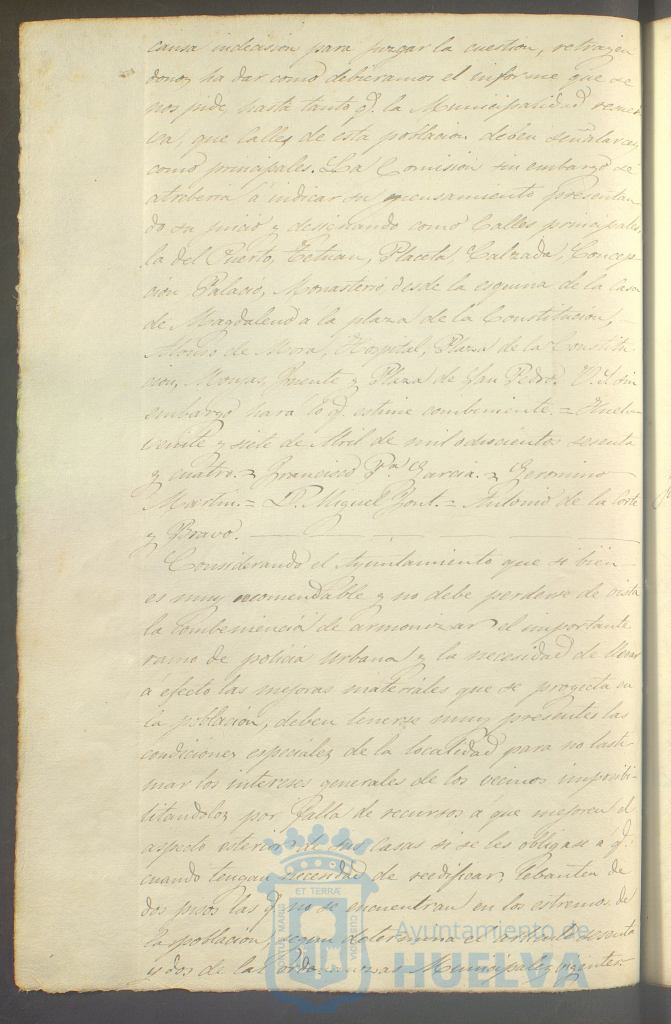 causa indecision para juzgar la cuestion, retrayen
donos ha dar como debieramos el informe que se
nos pide, hasta tanto q.e la Municipalidad resuel
va, que calles de esta poblacion deben señalarse
como principales. La Comision sin embargo se
atreberia á indicar su pensamiento presentan
do su juicio y designando como Calles principales
la del Puerto, Tetuan, Placeta, Calzada, Concep
cion Palacio, Monasterio, desde la esquina de la Casa
de Magdaleno a la plaza de la Constitucion,
Alonso de Mora, Hospital, Plaza de la Constitu
cion, Monjas, Fuente y Plaza de San Pedro. V.I. sin
embargo hará lo q.e estime combeniente. = Huelva
veinte y siete de Abril de mil ochocientos sesenta
y cuatro. = Francisco P.a Garcia. = Geronimo
Martin. = D. Miguel Font. = Antonio de la Corte
y Bravo.
Considerando el Ayuntamiento que si bien
es muy recomendable y no debe perderse de vista
la combeniencia de armonizar el importante
ramo de policia urbana y la necesidad de llevar
á efecto las mejoras materiales que se proyecta en
la poblacion, deben tenerse muy presentes las
condiciones especiales de la localidad para no lasti
mar los intereses generales de los vecinos imposibi
litandolos por falta de recursos á que mejoren el
aspecto exterior de sus casas si se les obligase á q.e
cuando tengan necesidad de reedificar, lebanten de
dos pisos las q.e no se encuentran en los estremos de
la poblacion, segun determina el articulo sesenta
y dos de las ordenanzas Municipales vigentes.
ET TERRÆ
PORTUS MARIS
CUSTODIA
Ayuntamiento de
HUELVA